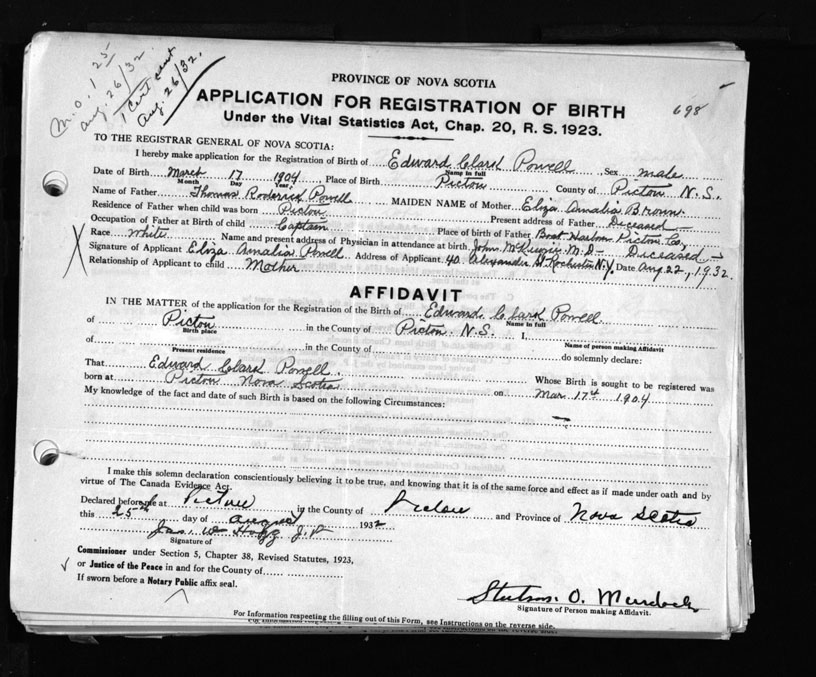 M.O. 1 25
Aug. 26/32
1 Cert sent
Aug. 26/32.
698
PROVINCE OF NOVA SCOTIA
APPLICATION FOR REGISTRATION OF BIRTH
Under the Vital Statistics Act, Chap. 20, R. S. 1923.
TO THE REGISTRAR GENERAL OF NOVA SCOTIA:
I hereby make application for the Registration of Birth of Edward Clark Powell, Sex male
Name in full
Date of Birth March 17 1904 Place of Birth Pictou County of Pictou N.S.
Month Day Year,
Name of Father Thomas Roderick Powell MAIDEN NAME of Mother Eliza Amalia Brown
Residence of Father when child was born Pictou Present address of Father Deceased
Occupation of Father at Birth of child Captain Place of birth of Father Boat Harbor Pictou Co,
Race White Name and present address of Physician in attendance at birth John M. D - Deceased -
Signature of Applicant Eliza Amalia Powell Address of Applicant 40 Alexander St Rochester N.Y, Date Aug 22, 1932.
Relationship of Applicant to child Mother
AFFIDAVIT
IN THE MATTER of the application for the Registration of the Birth of Edward Clark Powell
Name in full
of Pictou in the County of Pictou N.S. I,
Birth place Name of person making Affidavit
of in the County of do solemnly declare:
Present residence
That Edward Clark Powell. Whose Birth is sought to be registered was
born at Pictou Nova Scotia on Mar 17th 1904
My knowledge of the fact and date of such Birth is based on the following Circumstances:
I make this solemn declaration conscientiously believing it to be true, and knowing that it is of the same force and effect as if made under oath and by
virtue of The Canada Evidence Act.
Declared before me at Pictou in the County of Pictou and Province of Nova Scotia
this 25th day of August 1932
Jas. Wm Hogg J.P
Signature of
Commissioner under Section 5, Chapter 38, Revised Statutes, 1923,
or Justice of the Peace in and for the County of
If sworn before a Notary Public affix seal.
O. Murdoch
Signature of Person making Affidavit.
For Information respecting the filling out of this Form, see Instructions on the reverse side.